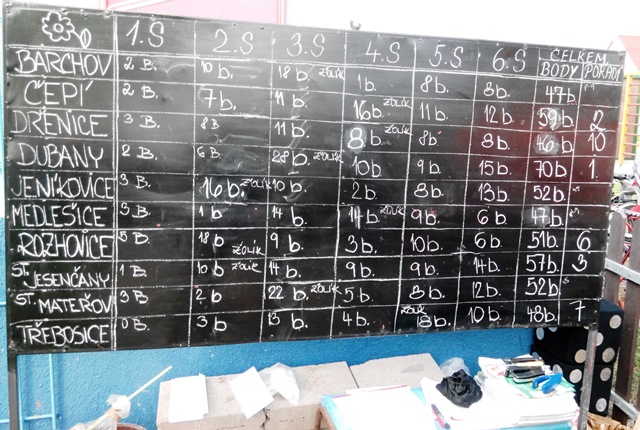 1.S 2.S 3.S 4.S 5.S 6.S CELKEM
BODY POŘADÍ
BARCHOV 2 B. 10 b. 18 b. ŽOLÍK 1b. 8b. 8b. 47b
ČEPÍ 2 B. 7b. 11 b. 16b. ŽOLÍK 11b. 12b 59b. 2
DŘENICE 3 B. 8B 11b. 8b. ŽOLÍK 8b. 8b. 46b. 10
DUBANY 2 B. 6 B 28b. ŽOLÍK 10b. 9b. 15b. 70b 1.
JENÍKOVICE 3 B. 16b. ŽOLÍK 10b. 2b. 8b. 13b. 52b.
MEDLEŠICE 3 B. 1 b 14b. 14b. ŽOLÍK 9b. 6b 47b.
ROZHOVICE 5 B. 18b ŽOLÍK 9b. 3b. 10b. 6b 51b. 6
ST. JESENČANY 1 B. 10b ŽOLÍK 14b. 9b. 9b. 14b. 57b. 3
ST. MATEŘOV 3 B. 2b 22b. ŽOLÍK 5b 8b. 12b. 52b
TŘEBOSICE 0 B. 3b 13 b. 4b. ŽOLÍK 18b. 10b. 48b. 7